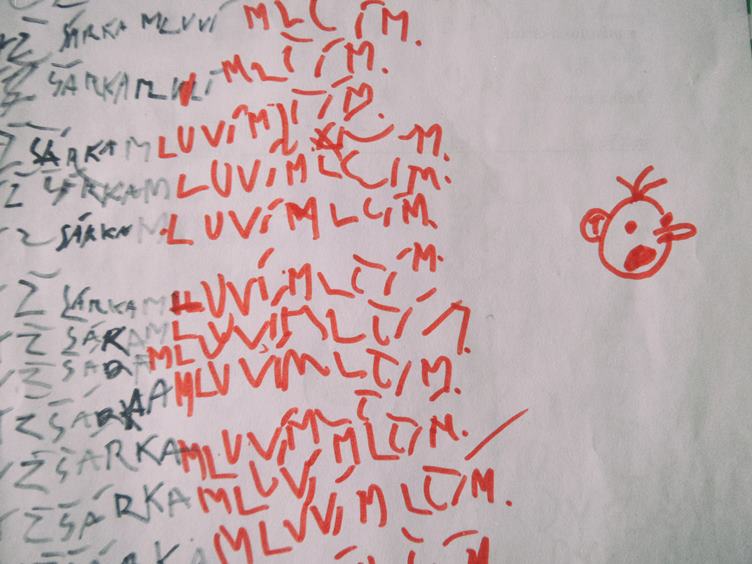 Ž ŠÁRKA MLUVÍ MLČÍM.
Ž ŠÁRKA MLUVÍ MLČÍM.
Ž ŠÁRKA MLUVÍ MLČÍM.
Ž ŠÁRKA MLUVÍ MLČÍM.
Ž ŠÁRKA MLUVÍ MLČÍM.
Ž ŠÁRKA MLUVÍ MLČÍM.
Ž ŠÁRKA MLUVÍ MLČÍM.
Ž ŠÁRKA MLUVÍ MLČÍM.
Ž ŠÁRKA MLUVÍ MLČÍM.
Ž ŠÁRKA MLUVÍ MLČÍM.
Ž ŠÁRKA MLUVÍ MLČÍM.
ŠÁRKA MLUVÍ